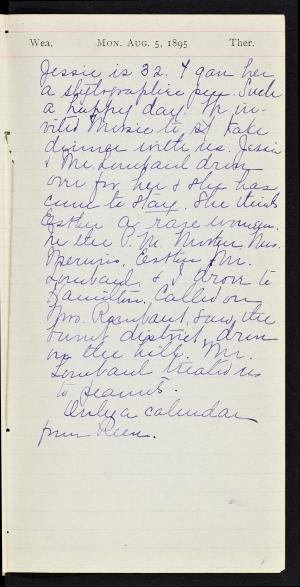 Wea. MON. AUG. 5, 1895 Ther.
Jessie is 32. I gave her
a stylographic pen. Such
a happy day. We in-
vited Minnie to take
dinner with us. Jessie
& Mr. Lombard drove
over for her & she has
come to stay. She thinks
Esther a rare woman.
In the P. M. Minnie, Mrs.
Esther, Mr.
Lombard, & I drove to
Hamilton. Called on
Mrs. saw the
burnt district, drove
up the hill. Mr.
Lombard treated us
to peanuts.
Only a calendar
from